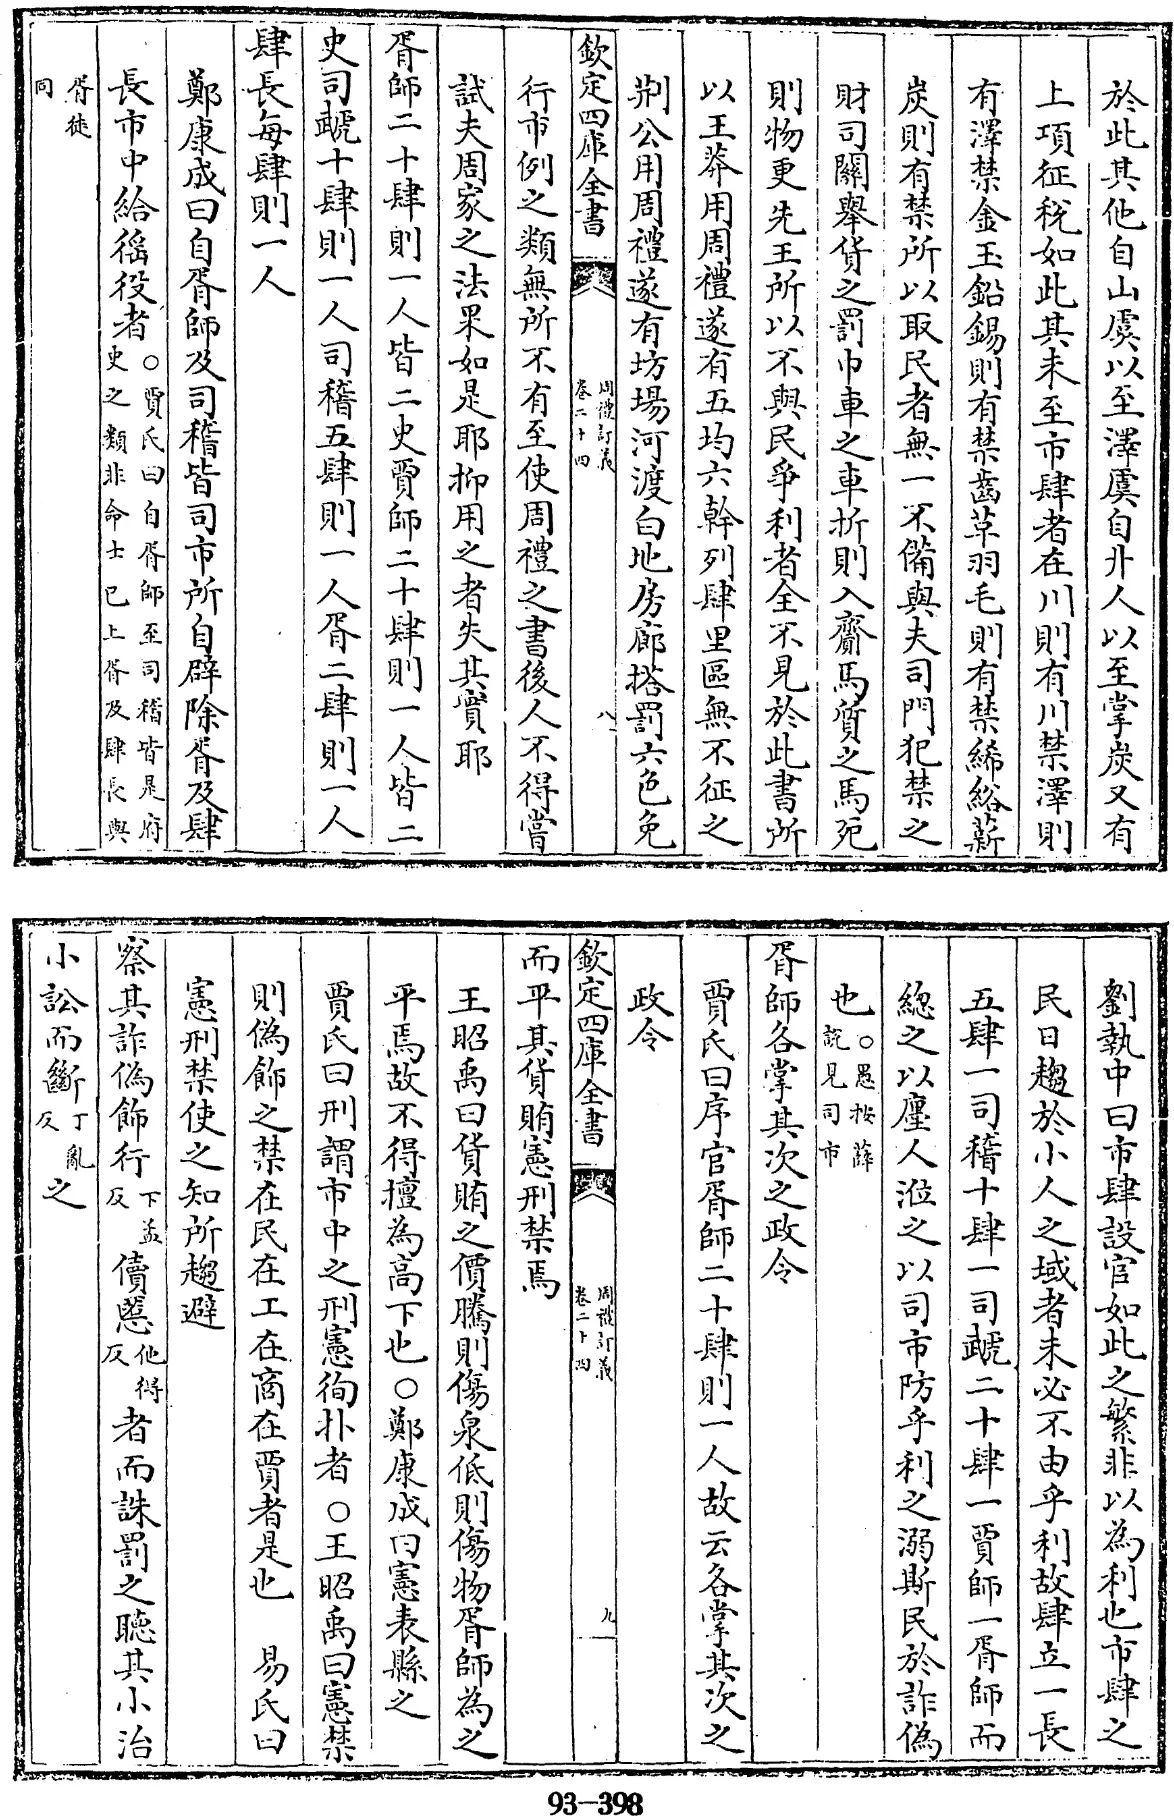 於此其他自山虞以至澤虞自丱人以至掌炭又有
上項征稅如此其未至市肆者在川則有川禁澤則
有澤禁金玉鉛錫則有禁齒草羽毛則有禁絺綌薪
炭則有禁所以取民者無一不備與夫司門犯禁之
財司關舉貨之罰巾車之車折則入齎馬質之馬死
則物更先王所以不與民爭利者全不見於此書所
以王莽用周禮遂有五均六幹列肆里區無不征之
荆公用周禮遂有坊場河渡白地房廊搭罰六色免
欽定四庫全書
周禮訂義
卷二十四
八
行市例之類無所不有至使周禮之書後人不得嘗
試夫周家之法果如是耶抑用之者失其實耶
胥師二十肆則一人皆二史賈師二十肆則一人皆二
史司虣十肆則一人司稽五肆則一人胥二肆則一人
肆長每肆則一人
鄭康成曰自胥師及司稽皆司市所自辟除胥及肆
長市中給徭役者○賈氏曰自胥師至司稽皆是府
史之類非命士已上胥及肆長與
胥徒
同
劉執中曰市肆設官如此之繁非以為利也市肆之
民日趨於小人之域者未必不由乎利故肆立一長
五肆一司稽十肆一司虣二十肆一賈師一胥師而
總之以廛人涖之以司市防乎利之溺斯民於詐偽
也○愚按薛
說見司市
胥師各掌其次之政令
賈氏曰序官胥師二十肆則一人故云各掌其次之
政令
欽定四庫全書
周禮訂義
卷二十四
九
而平其貨賄憲刑禁焉
王昭禹曰貨賄之價騰則傷泉低則傷物胥師為之
平焉故不得擅為高下也○鄭康成曰憲表縣之
賈氏曰刑謂市中之刑憲徇扑者○王昭禹曰憲禁
則偽飾之禁在民在工在商在賈者是也 易氏曰
憲刑禁使之知所趨避
察其詐偽飾行下孟反儥慝他得反者而誅罰之聽其小治
小訟而斷丁亂反之
93-398